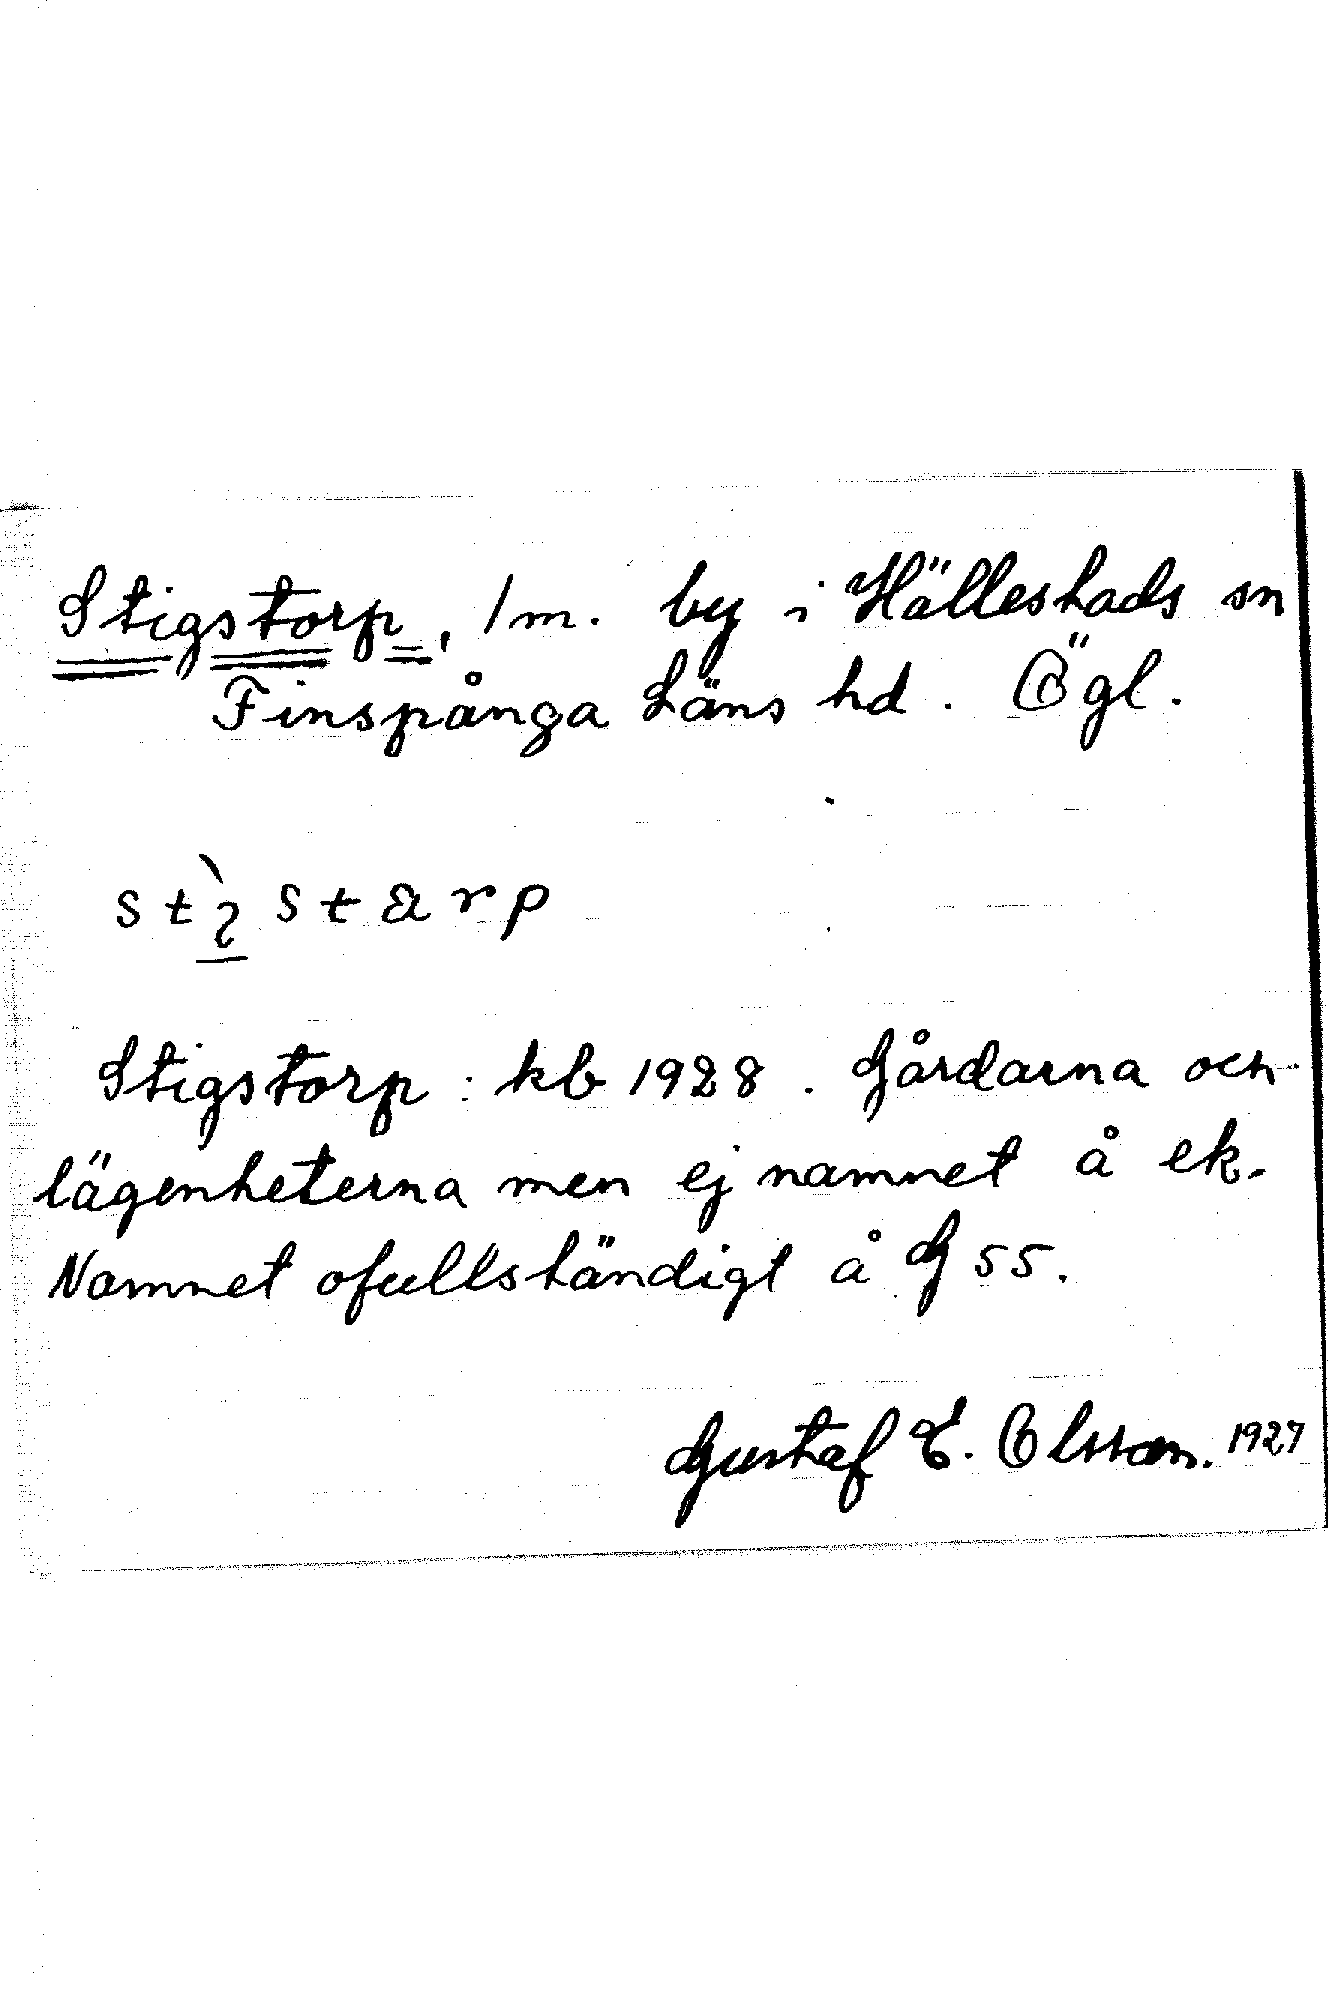 Stigstorp, 1 m. by i Hällestads sn
Finspånga Läns hd. Ögl.
Stigstorp : kb 1928. Gårdarna och
lägenheterna men ej namnet å ek.
Namnet ofullständigt å G 55.
Gustaf E. Olsson. 1927